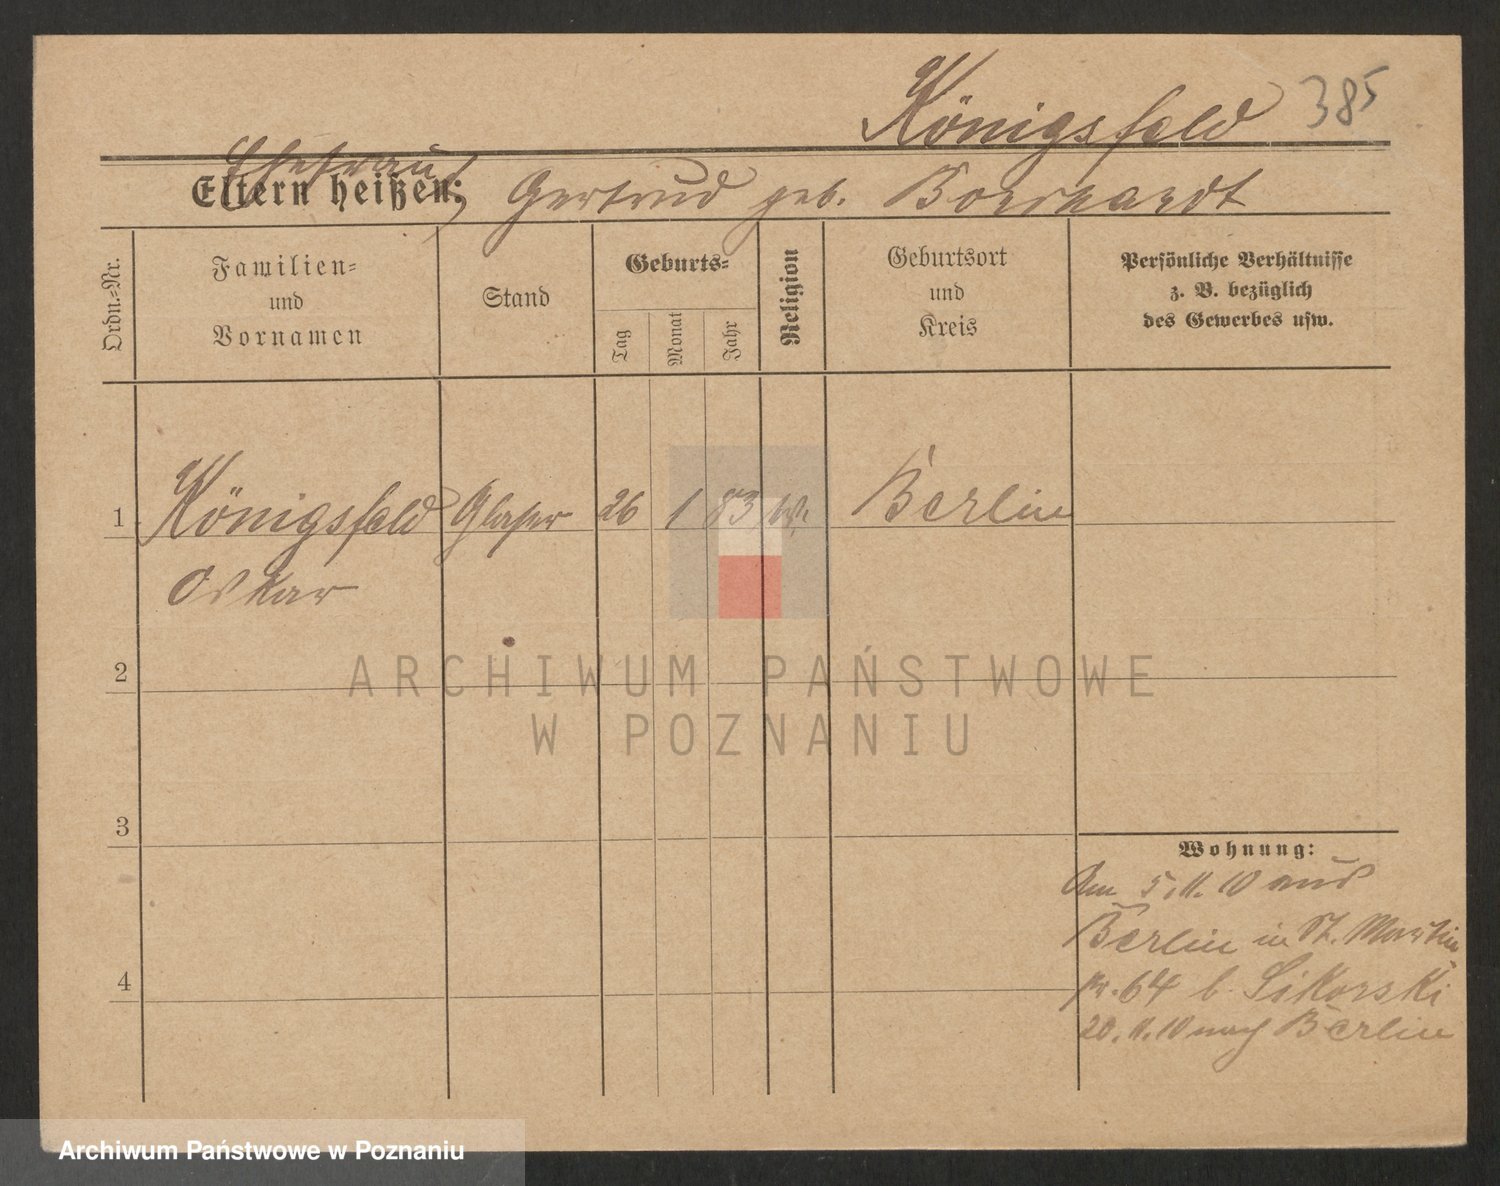 Königsfeld 385
Ehefrau
Eltern heißen: Gertrud geb.
Ordn.-Nr.
Familien-
und
Vornamen
Stand
Geburts-
Tag
Monat
Jahr
Religion
Geburtsort
und
Kreis
Persönliche Verhältnisse
z. B. bezüglich
des Gewerbes usw.
1 Königsfeld Glaser 26 1 83 Berlin
Oskar
2
ARCHIWUM PAŃSTWOWE
W POZNANIU
3
Wohnung:
Am 5.11.10 aus
Berlin in St. Martin
64 b Sikorski
4
20.11.10 nach Berlin
Archiwum Państwowe w Poznaniu